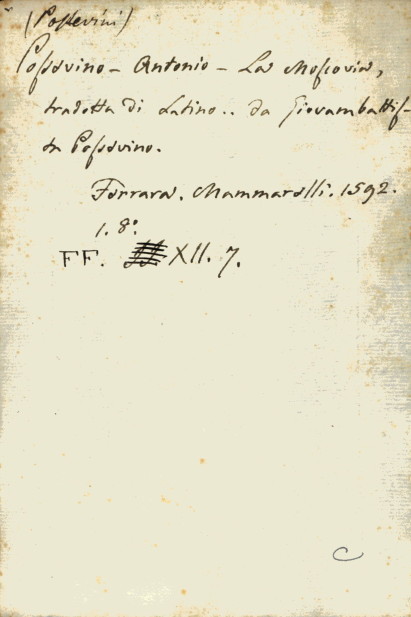 (Possevini)
Possevino - Antonio - La Moscovia,
tradotta di Latino .. da Giovambattis-
ta Possevino.
Ferrara. Mammarelli. 1592.
1. 8°.
FF. XII. 7.
C